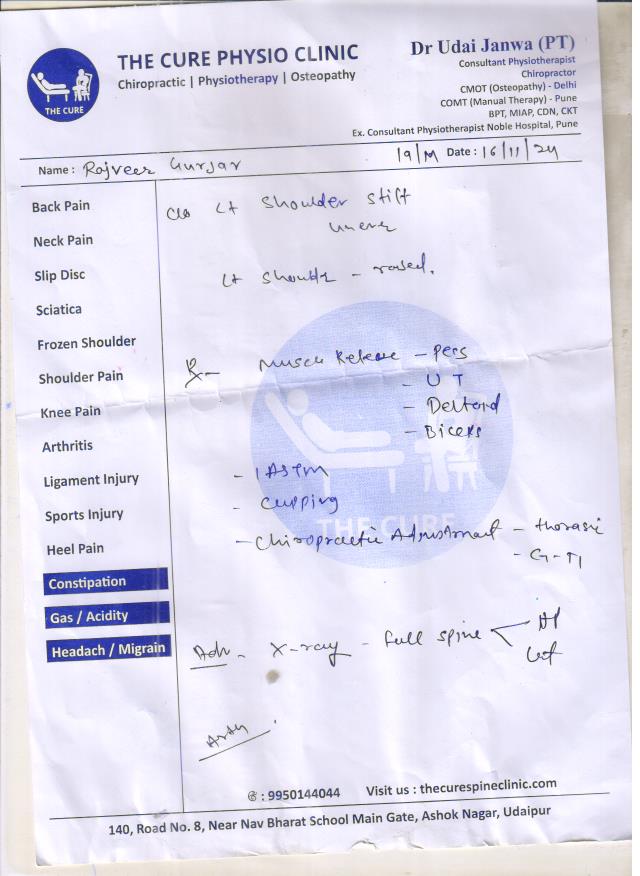 THE CURE PHYSIO CLINIC
Chiropractic | Physiotherapy | Osteopathy
THE CURE
Dr Udai Janwa (PT)
Consultant Physiotherapist
Chiropractor
CMOT (Osteopathy) - Delhi
COMT (Manual Therapy) - Pune
BPT, MIAP, CDN, CKT
Ex. Consultant Physiotherapist Noble Hospital, Pune
Name: Rajveer Gurjar 19/M Date: 16/11/24
Back Pain
Neck Pain
Slip Disc
Sciatica
Frozen Shoulder
Shoulder Pain
Knee Pain
Arthritis
Ligament Injury
Sports Injury
Heel Pain
Constipation
Gas / Acidity
Headach / Migrain
c/o Lt Shoulder stiff
uneven
Lt Shoulder - raised.
Rx - Muscle Release - Pecs
- U T
- Deltoid
- Biceps
- IASTM
- Cupping
- Chiropractic Adjustment - thoracic
THE CURE
Adv - X-ray - full spine AP
Lat
: 9950144044 Visit us : thecurespineclinic.com
140, Road No. 8, Near Nav Bharat School Main Gate, Ashok Nagar, Udaipur